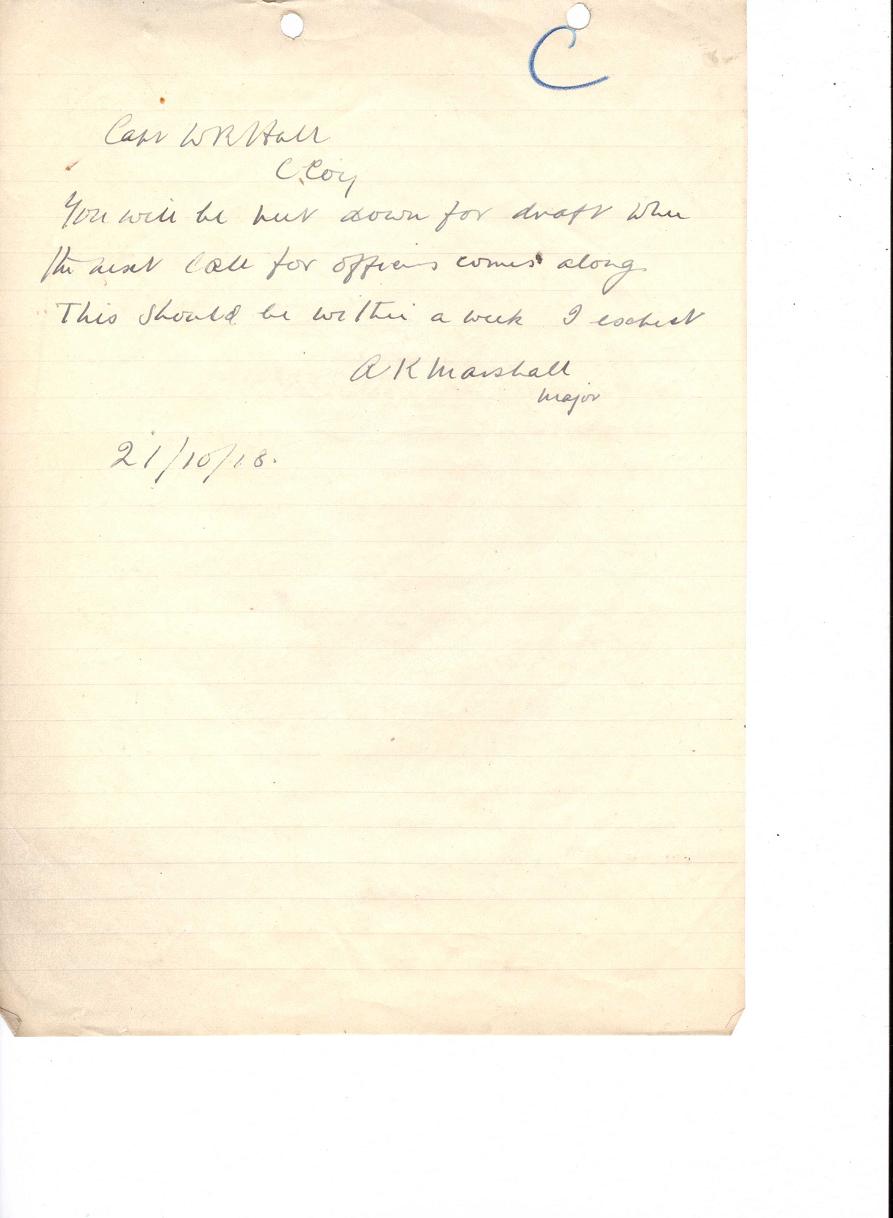 C
Capt W R Hall
C Coy
You will be put down for draft when
the next call for officers comes along
This should be within a week I expect
A K Marshall
Major
21/10/18.